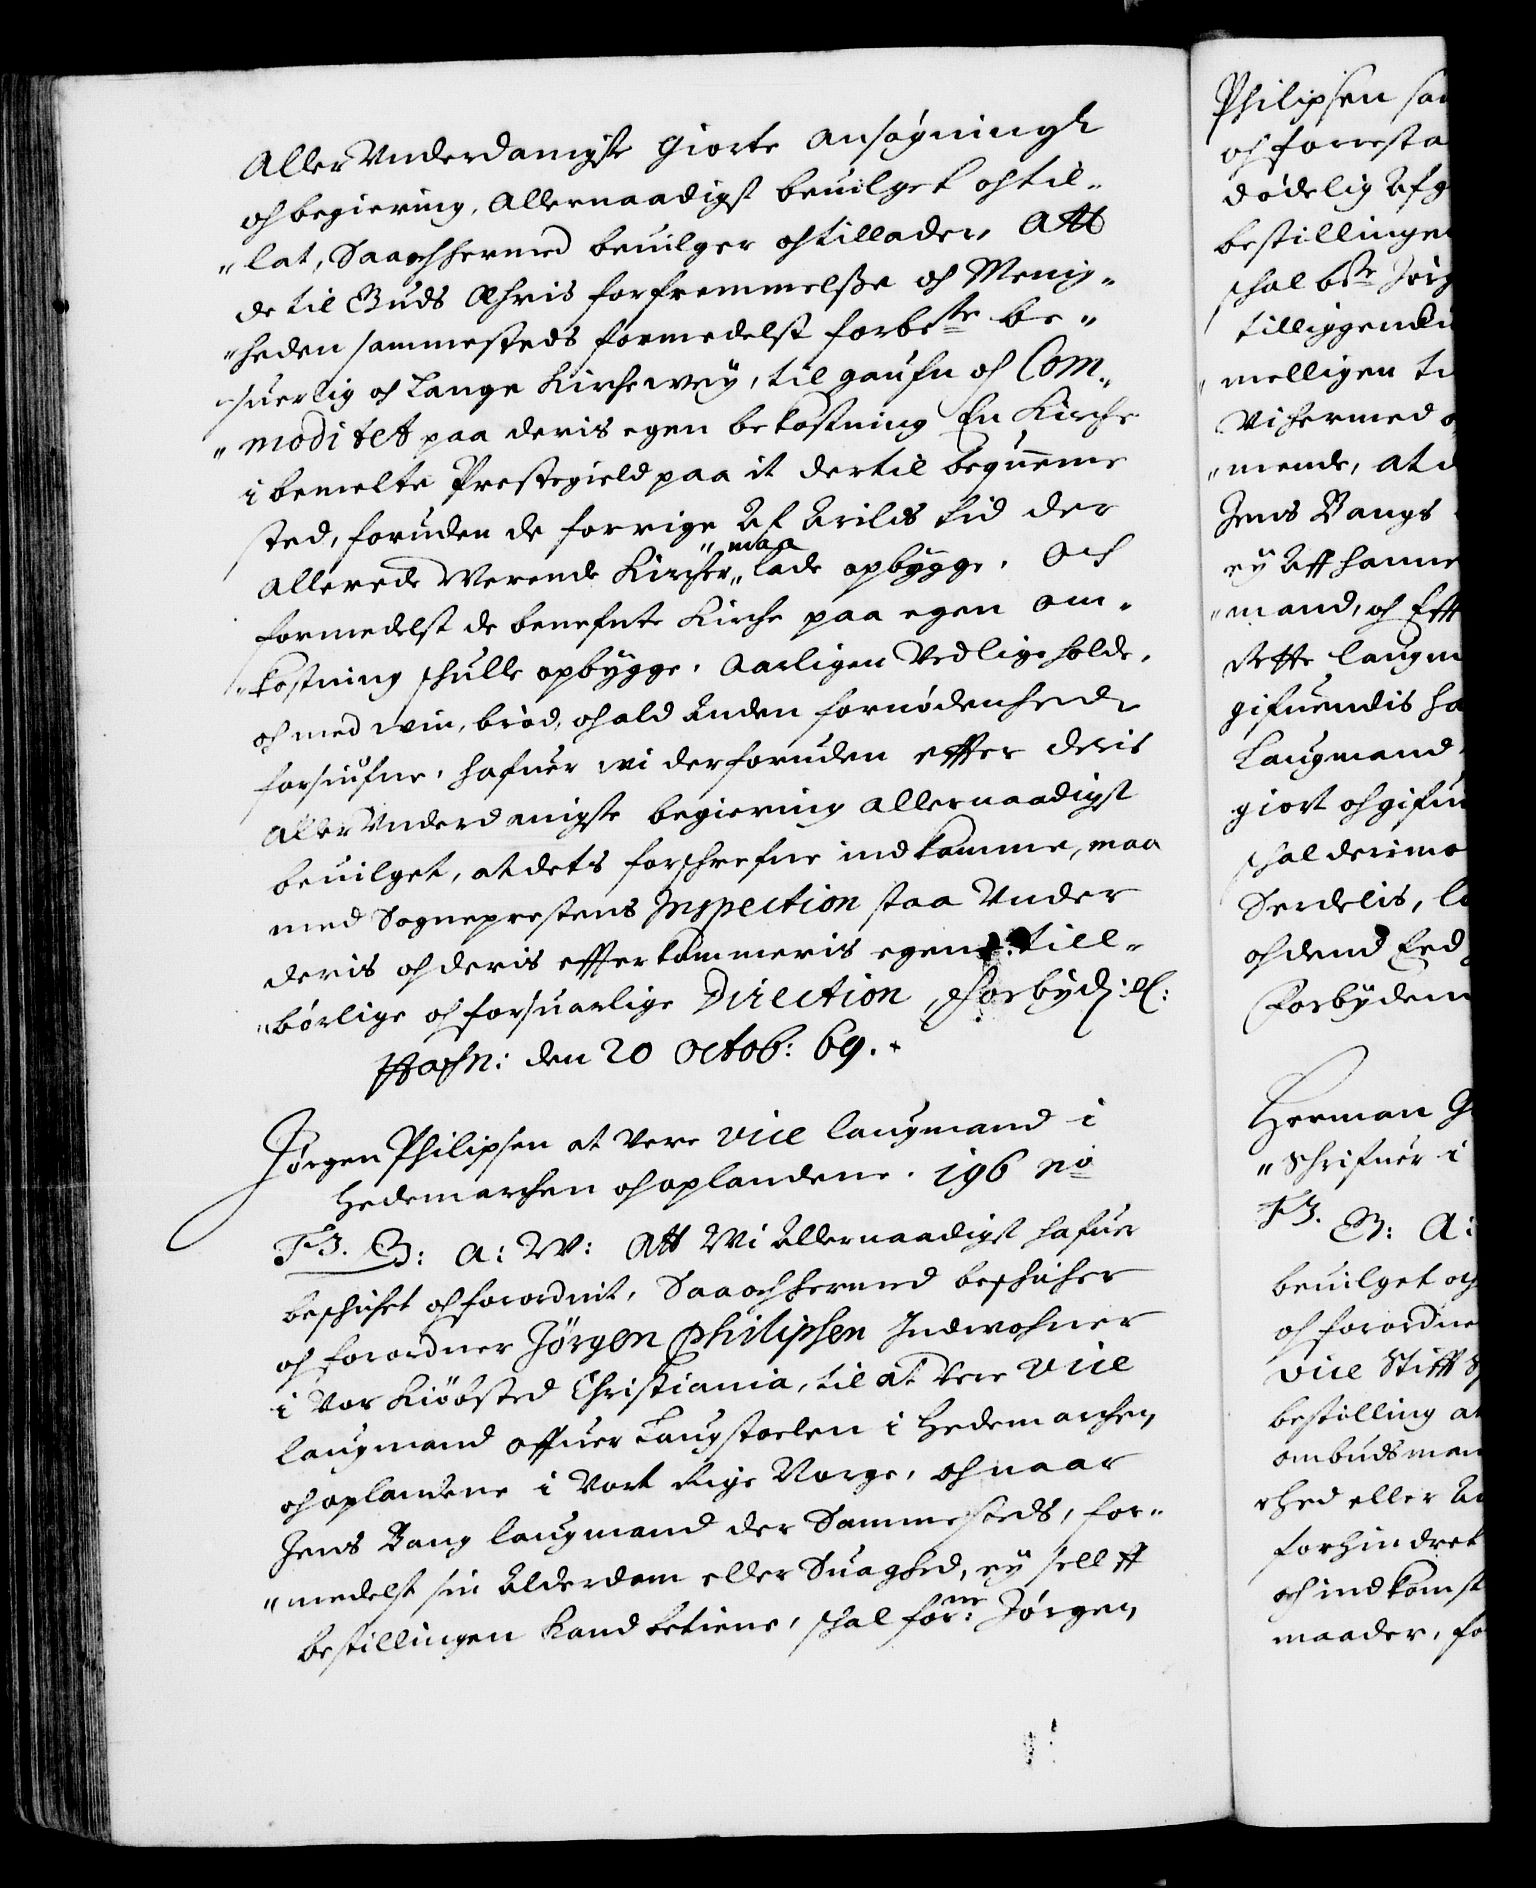 Aller Vnderdanigste giorte ansøgning
och begiering, Allernaadigst beuilget och til-
"lat, Saa och hermed beuilger och tillader, Att
de til Guds Æhris forfremmelsse och Menig-
"heden sammesteds formedelst forbete be-
"suerlig och Lange Kirchewey, til gaufn och Com-
"moditet paa deris egen bekostning En Kirche
i bemelte Prestegield paa it dertil beqveme
sted, foruden de forrige Af Arilds tid der
Allerede Verende Kircher "maa" lade opbygge. Och
formedelst de benefnte Kirche paa egen om-
"kostning schulle opbygge, Aarligen Vedligeholde,
och med win, brød, och ald Anden fornødenhed
forsiufne, hafuer wi derforuden effter deris
Aller Vnderdanigste begiering allernaadigst
beuilget, at dets forschrefne indkomme, maa
med Sogneprestens Inspection staa Vnder
deris och deris effterkommeris egen till-
"børlige och forsuarlige Direction, Forbyd: etc:
Haffn: den 20 Octob: 69.
Jørgen Philipsen at Vere Vice laugmand i
Hedemarchen och oplandene. 196 No
F3. G: A: W: Att Wi Allernaadigst hafuer
beschichet och forordnit, Saa och hermed beschicher
och forordner Jørgen Philipsen Indwohner
i Vor Kiøbsted Christiania, til at Vere Vice
laugmand offuer Laugstoelen i Hedemarchen
och oplandene i Vort Rige Norge, och naar
Jens Bang laugmand der Sammesteds, for-
"medelst sin Alderdom eller Suaghed, ey selff
bestillingen kand betiene, schal forne: Jørgen
Philipsen
och forresta
dødelig Afg
bestillingen
schal bte Jørg
tilliggende
melligen
Vi hermed
"mende, at
Jens Bangs
ey Aff hanne
"mand, och Eff
Rette laugm
gifuendis ha
Laugmand
giort och gifu
schal derimo
Serdelis,
och dend Eed
Forbydem
Herman
"Schrifuer i
F3. G: A:
beuilget och
och forordne
Vice Stiff
bestilling
ombudsman
"hed eller
forhindret
och indkomst
maader,